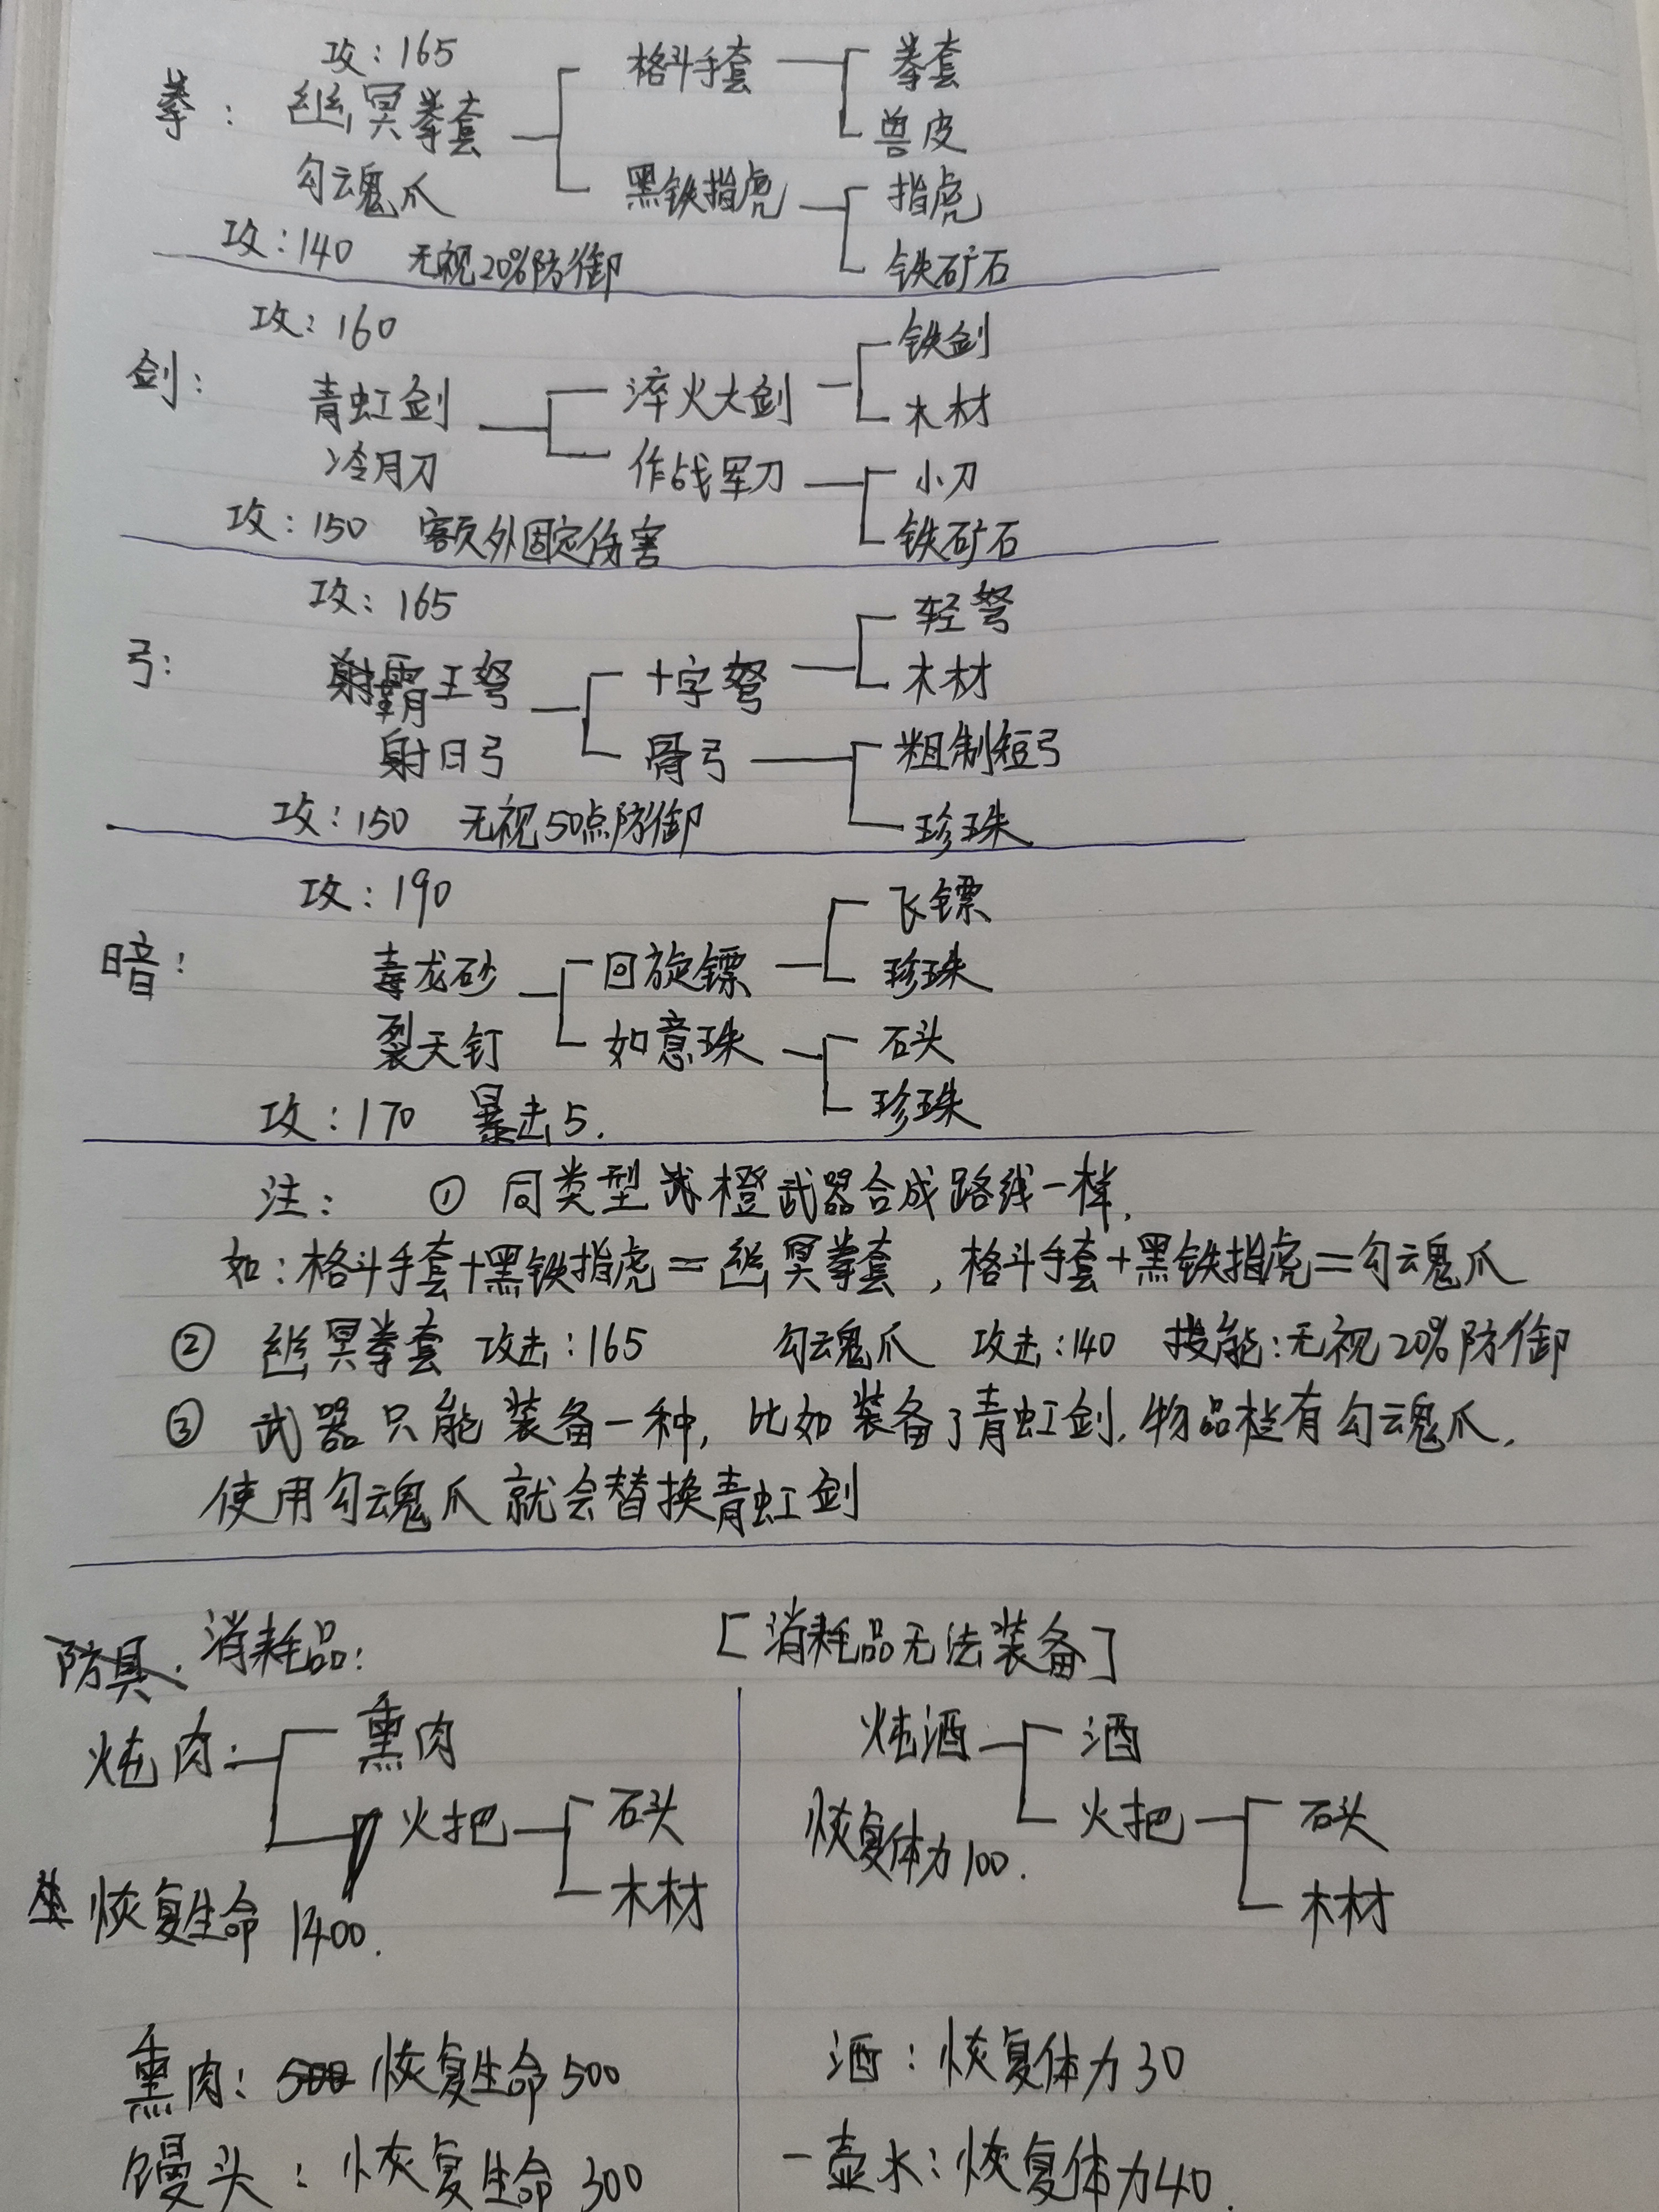 攻：165
拳：幽冥拳套 格斗手套 拳套
兽皮
勾魂爪 黑铁指虎 指虎
攻：140 无视20%防御 铁矿石
攻：160
剑：青虹剑 淬火大剑 铁剑
木材
冷月刀 作战军刀 小刀
攻：150 额外固定伤害 铁矿石
攻：165 轻弩
弓：霸王弩 十字弩 木材
射日弓 骨弓 粗制短弓
攻：150 无视50点防御 珍珠
攻：190 飞镖
暗：毒龙砂 回旋镖 珍珠
裂天钉 如意珠 石头
攻：170 暴击5. 珍珠
注：① 同类型橙武器合成路线一样.
如：格斗手套+黑铁指虎＝幽冥拳套，格斗手套+黑铁指虎＝勾魂爪
② 幽冥拳套 攻击：165 勾魂爪 攻击：140 技能：无视20%防御
③ 武器只能装备一种，比如装备了青虹剑.物品栏有勾魂爪.
使用勾魂爪就会替换青虹剑
防具.消耗品： [消耗品无法装备]
炖肉： 熏肉 炖酒 酒
火把 石头 火把 石头
木材 恢复体力100. 木材
恢复生命1400.
熏肉：恢复生命500 酒：恢复体力30
馒头：恢复生命300 一壶水：恢复体力40.